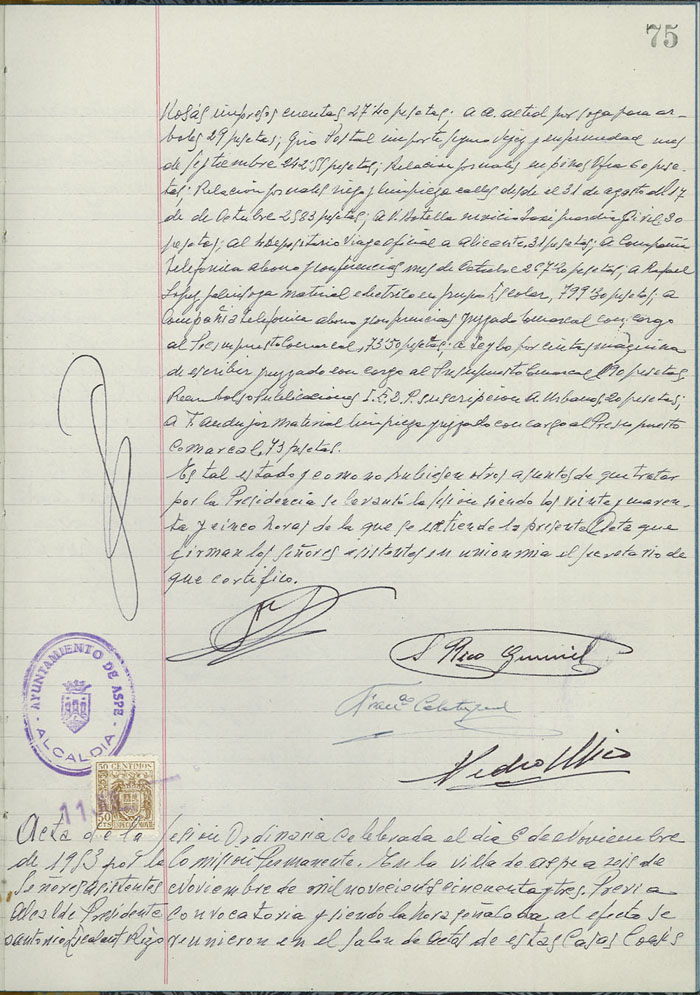 75
Rosas impresos cuentas 27'40 pesetas; a A. Alted por soga para ar-
boles 29 pesetas; Giro Postal importe seguro Vejez y enfermedad mes
de Septiembre 242'55 pesetas; Relacion jornales en pinos 60 pese-
tas; Relacion jornales riego y limpieza calles desde el 31 de agosto al 17
de de Octubre 2583 pesetas; A P. Botella servicio taxi guardia Civil, 30
pesetas; al Depositario Viaje oficial a Alicante, 31 pesetas; a Compañia
Telefonica abono y conferencias mes de Octubre pesetas, a Rafael
Lopez por material electrico en grupo Escolar, 799'30 pesetas; a
Compañia Telefonica abono y conferencias juzgado Comarcal con cargo
al Presupuesto Comarcal, 73'50 pesetas; a por cintas maquina
de escribir juzgado con cargo al Presupuesto Comarcal pesetas,
Reembolso Publicaciones suscripcion A. Urbanos 20 pesetas;
a T. por Material limpieza juzgado con cargo al Presupuesto
Comarcal, 73 pesetas.
En tal estado y como no hubiesen otros asuntos de que tratar
por la Presidencia se levantó la sesion siendo las veinte y cuaren-
ta y cinco horas de la que se extiende la presente Acta que
firman los señores asistentes en union mia el secretario de
que certifico.
S Rico
Franco Calatayud
Pedro Mico
AYUNTAMIENTO DE ASPE
ALCALDIA
50 CENTIMOS
50 CTS ESPECIAL MOVIL
11
Acta de la Sesion Ordinaria celebrada el dia 6 de Noviembre
de 1953 por la Comision Permanente. En la villa de Aspe a seis de
Señores asistentes
Noviembre de mil novecientos cincuenta y tres. Previa
Alcalde Presidente
Convocatoria y siendo la hora señalada al efecto se
D Antonio Rizo
reunieron en el salon de actos de estas Casas Consis